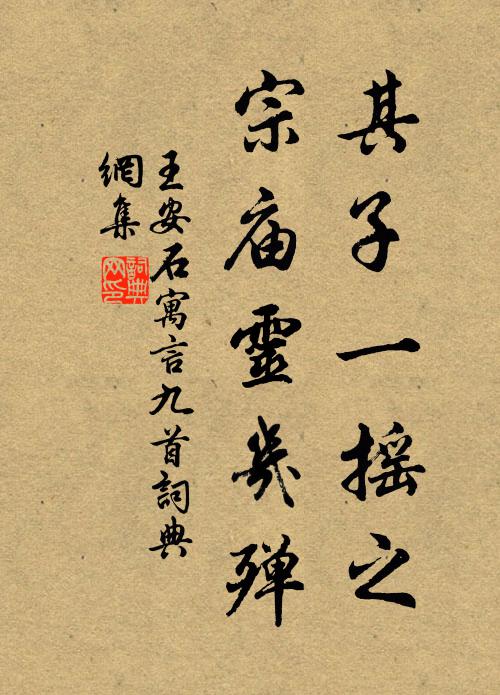 其子一摇之
宗庙靈幾殫
王安石寓言九首詞典
網集
詞典網印